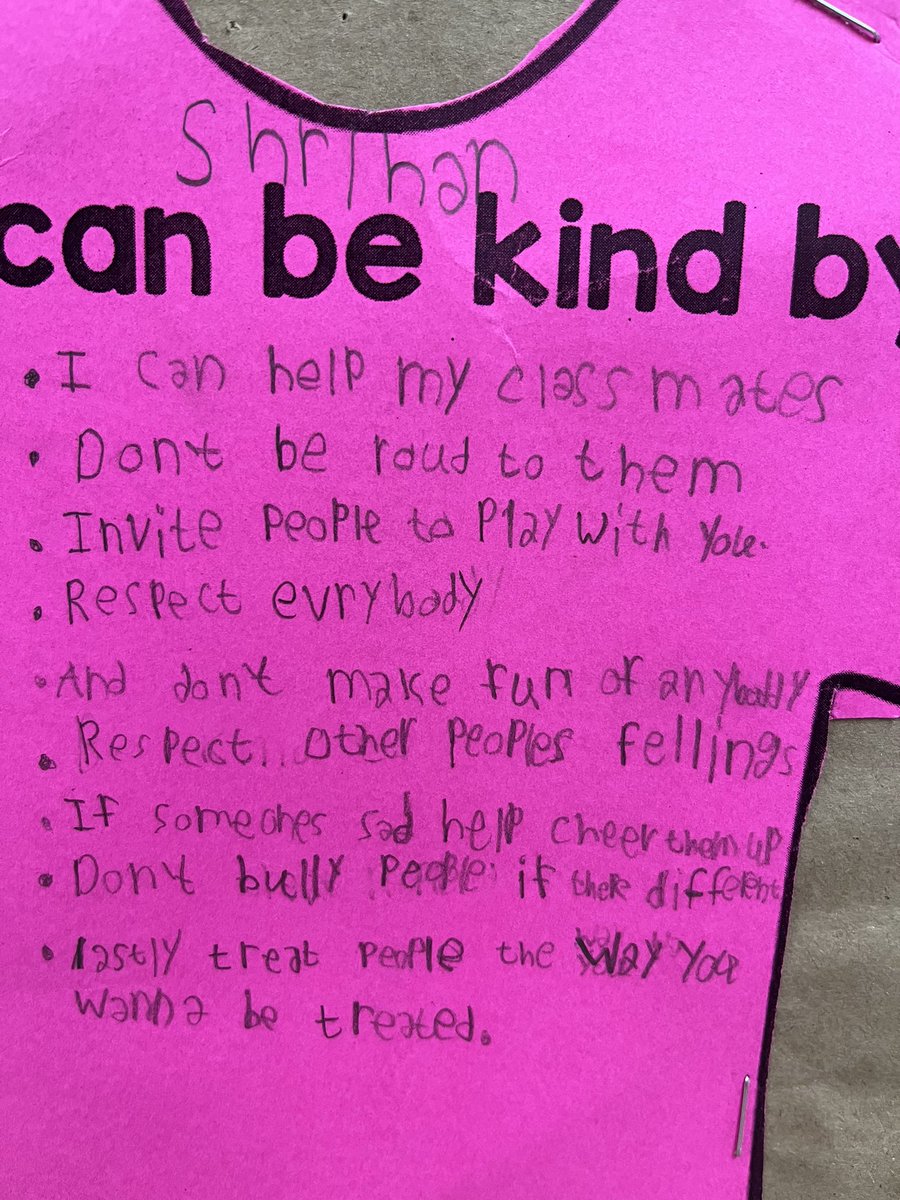 Shrihan
can be kind by
• I can help my classmates
• Don't be roud to them
• Invite people to play with you.
• Respect evrybody
• And don't make fun of anybody
• Respect other peoples fellings
• If someones sad help cheer them up
• Don't bully people if there different
• lastly treat people the way you
wanna be treated.